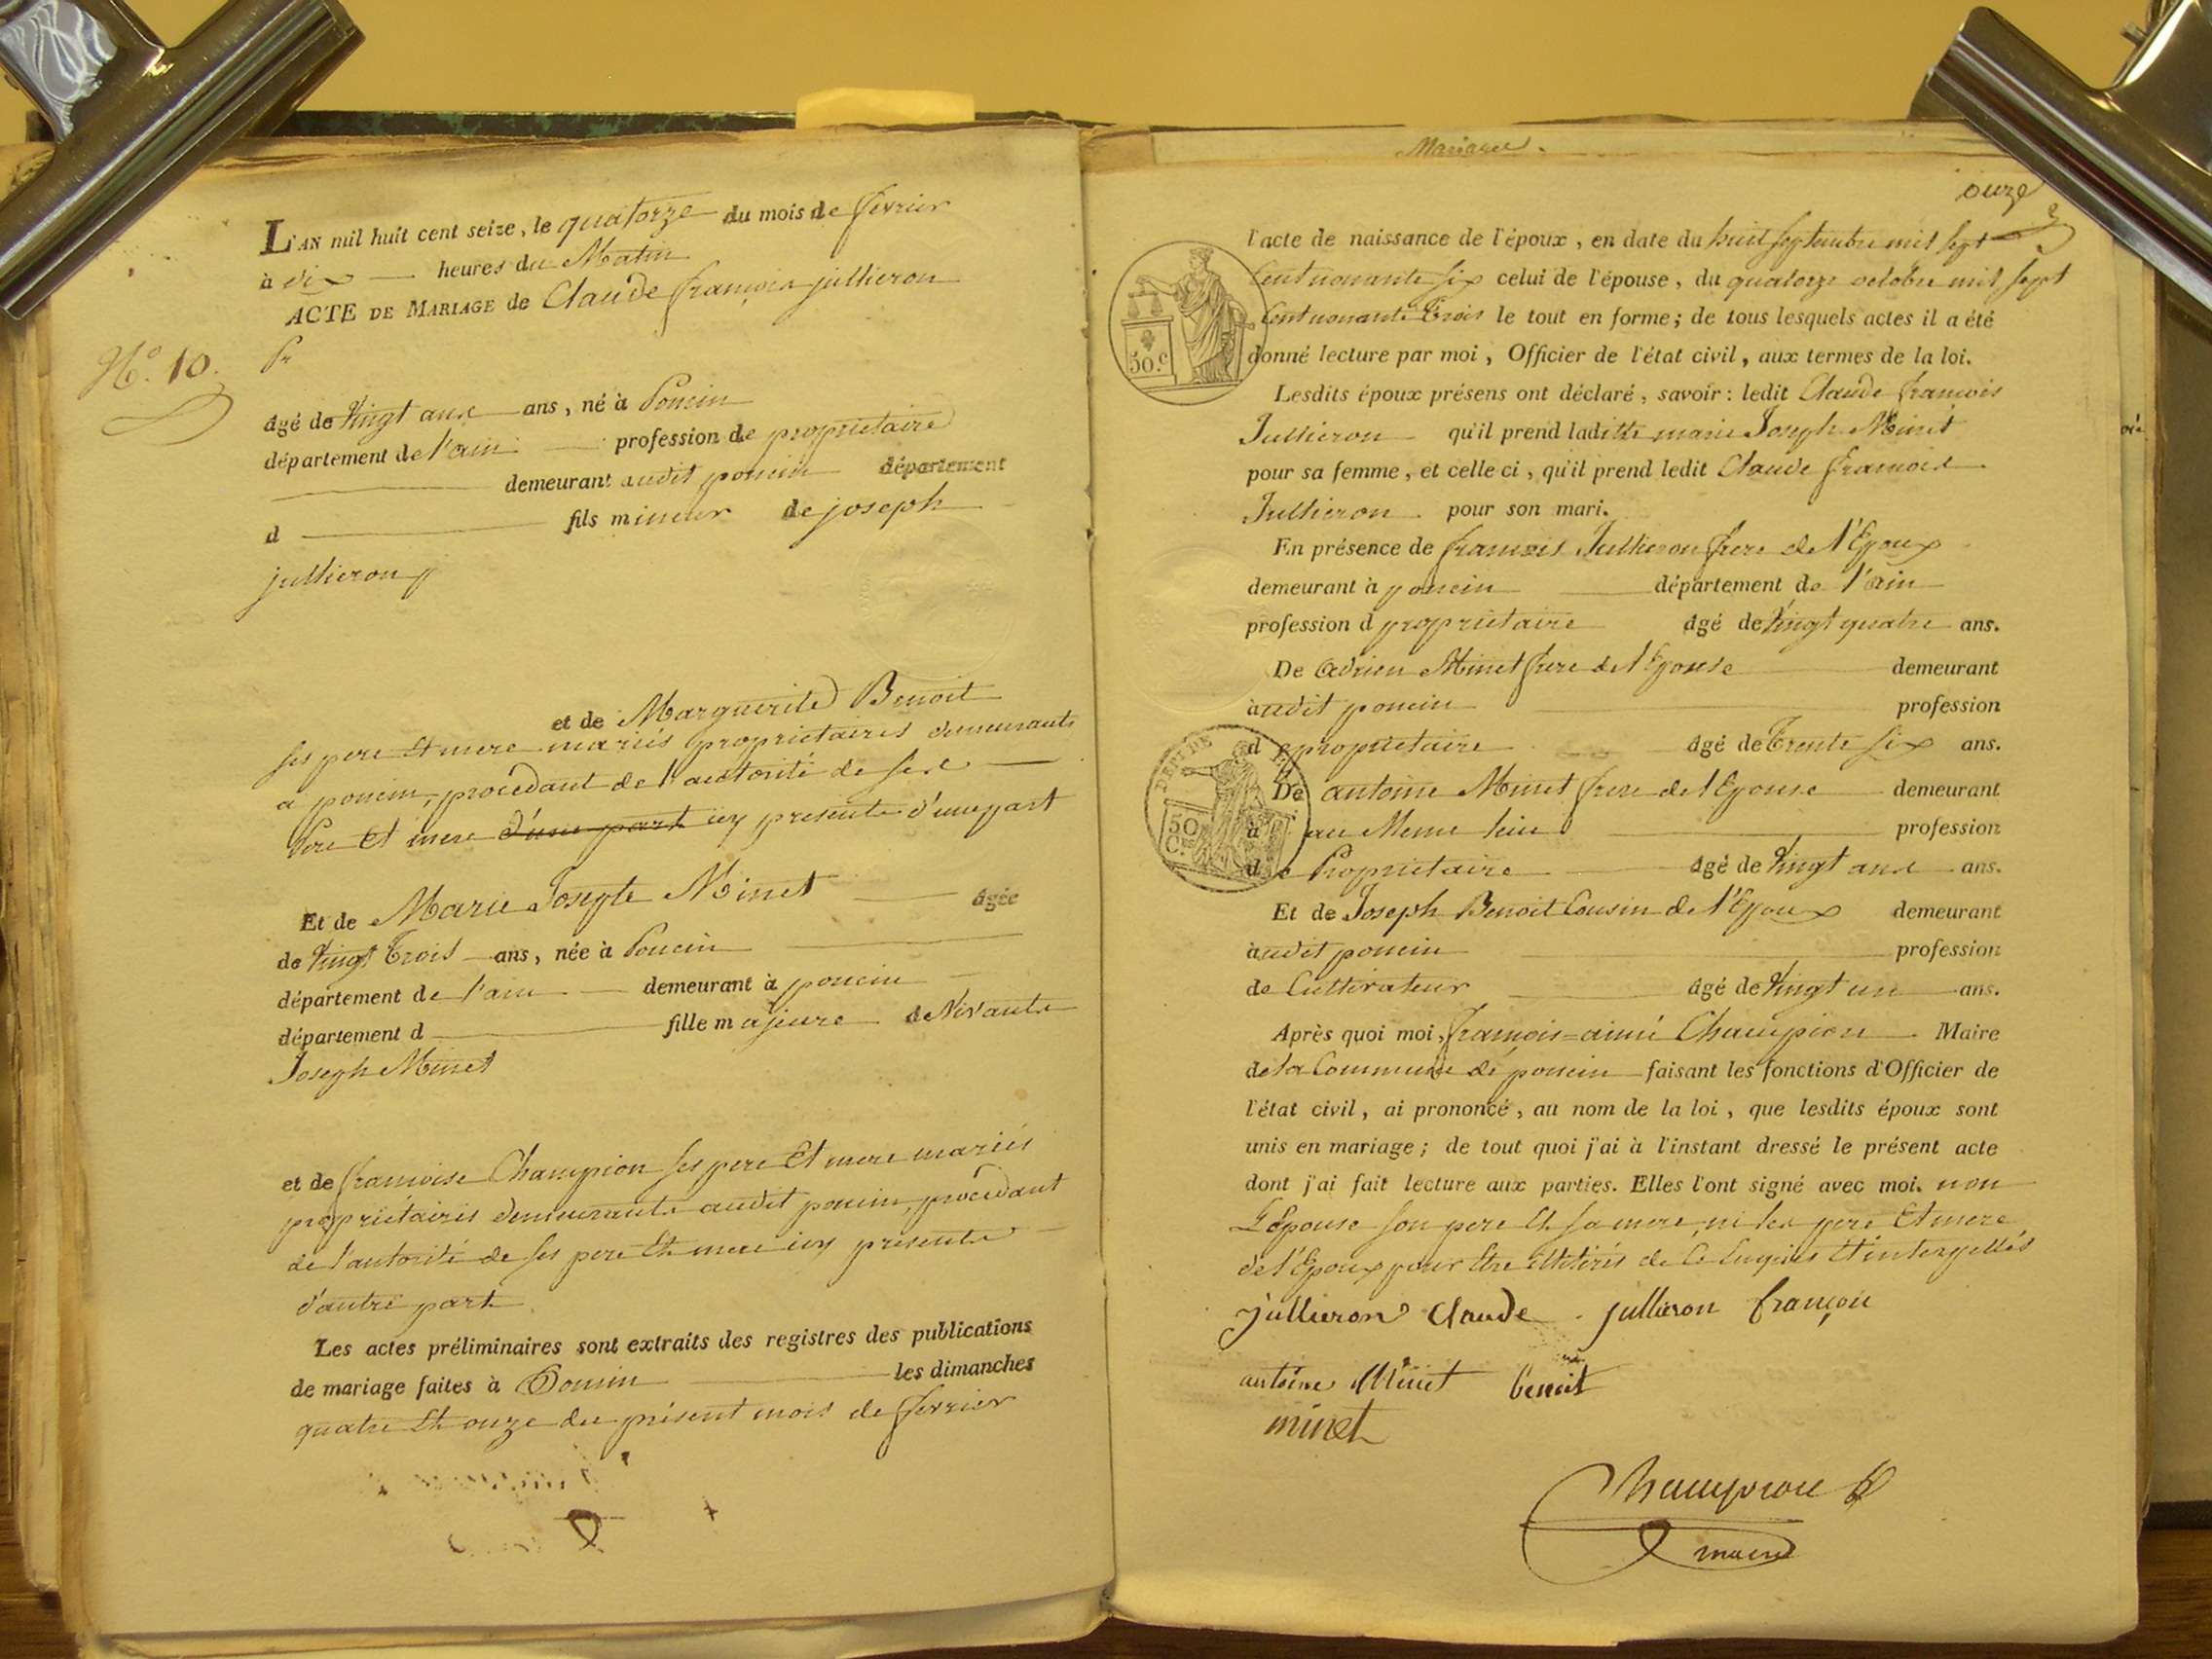 L'AN mil huit cent seize, le quatorze du mois de fevrier
à dix heures du Matin
ACTE DE MARIAGE de Claude françois jullieron
N.º 10.
âgé de Vingt ans ans, né à Poncin
département de l'ain profession de proprietaire
demeurant audit poncin département
d fils mineur de joseph
jullieron
et de Marguerite Benoit
ses pere et mere mariés proprietaires demeurants
a poncin, procedant de l'autorité de ses
Pere et mere d'une part icy presents d'une part
Et de Marie Josephte Minet âgée
de Vingt trois ans, née à Poncin
département de l'ain demeurant à poncin
département d fille majeure de Vivants
Joseph Minet
et de françoise Champion ses pere et mere mariés
propriétaires demeurants audit poncin, procedant
de l'autorité de ses pere et mere icy presents
d'autre part
Les actes préliminaires sont extraits des registres des publications
de mariage faites à Poncin les dimanches
quatre et onze du présent mois de fevrier
Mariages.
onze
l'acte de naissance de l'époux, en date du huit septembre mil sept
Cent nonante six celui de l'épouse, du quatorze octobre mil sept
Cent nonante Trois le tout en forme; de tous lesquels actes il a été
50.c donné lecture par moi, Officier de l'état civil, aux termes de la loi.
Lesdits époux présens ont déclaré, savoir: ledit Claude francois
Jullieron qu'il prend laditte marie Joseph Minet
pour sa femme, et celle ci, qu'il prend ledit Claude francois
Jullieron pour son mari.
En présence de francois Jullieron frere de l'Epoux
demeurant à poncin département de l'ain
profession d proprietaire âgé de Vingt quatre ans.
De Adrien Minet frere de l'Epouse demeurant
à audit poncin profession
DEPT DE
d e proprietaire âgé de Trente six ans.
De antoine Minet frere de l'Epouse demeurant
50 C.
à au Meme lieu profession
d e Proprietaire âgé de Vingt ans ans.
Et de Joseph Benoit Cousin de l'Epoux demeurant
à audit poncin profession
de Cultivateur âgé de Vingt un ans.
Après quoi moi, françois=aimé Champion Maire
de la Commune de poncin faisant les fonctions d'Officier de
l'état civil, ai prononcé, au nom de la loi, que lesdits époux sont
unis en mariage; de tout quoi j'ai à l'instant dressé le présent acte
dont j'ai fait lecture aux parties. Elles l'ont signé avec moi. non
L'Epouse son pere et sa mere, ni les pere et mere
de l'Epoux pour être illitérés de ce enquis et interpellés
jullieron Claude jullieron françois
antoine Minet benoit
minet
Champion
maire